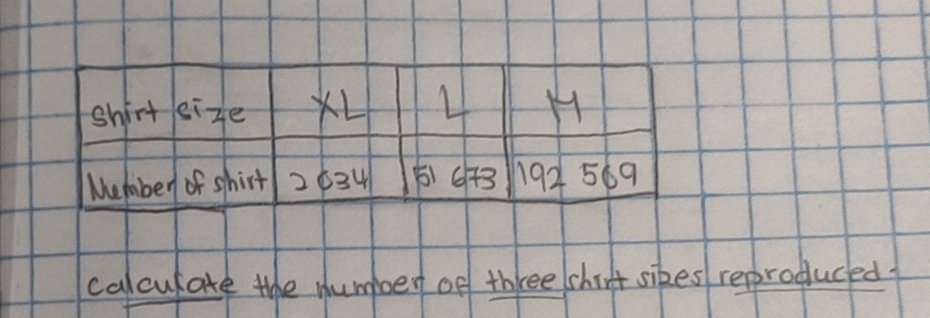 Shirt size XL L M
Number of shirt 2 634 51 673 192 569
calculate the number of three shirt sizes reproduced.